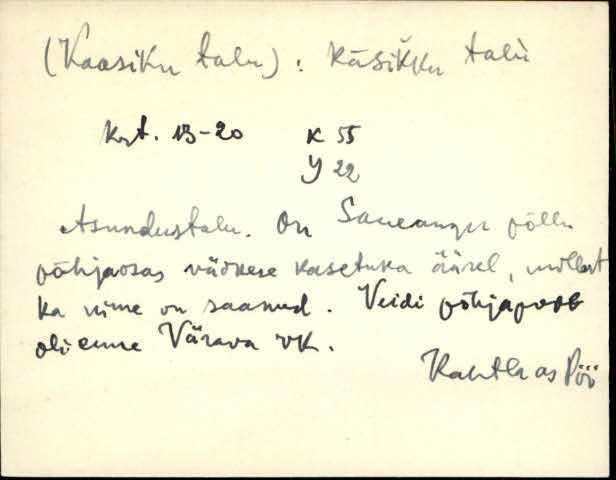 (Kaasiku talu) : kāsikku talù
Krt. 13-20 K 55
Y 22
Asundustalu. On Saueaugu põllu
põhjaosas väikese kasetuka ääred, millest
ka nime on saanud. Veidi põhjapool
oli enne Värava vk.
Kantla as Pöi